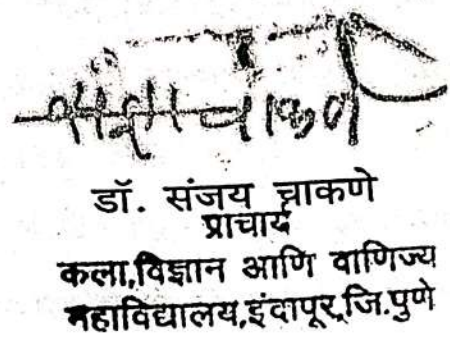 डॉ. संजय चाकणे
प्राचार्य
कला,विज्ञान आणि वाणिज्य
महाविद्यालय,इंदापूर,जि.पुणे